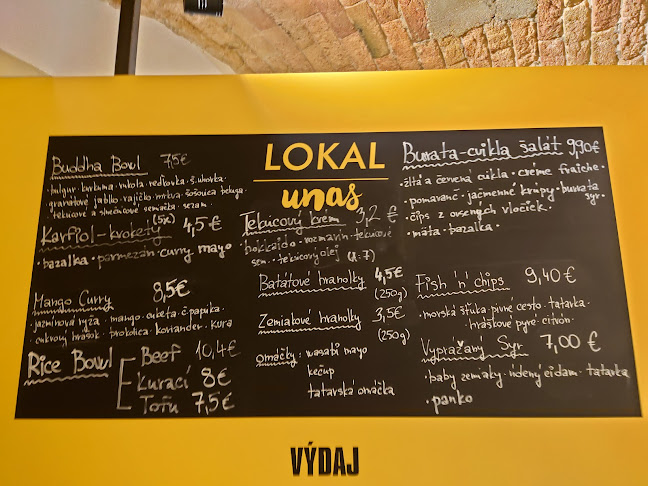 Buddha Bowl 7,5€
· bulgur · kurkuma · rukola · reďkovka · š. uhorka ·
granátové jablko · rajčiko · mrkva · šošovica beluga ·
tekvicové a slnečnicové semiačka · sezam ·
Karfiol-krokety (5x) 4,5 €
· bazalka · parmezán · curry mayo
Mango Curry 8,5€
· jazmínová ryža · mango · cuketa · č. paprika ·
cukrový hrášok · brokolica · koriander · kura
Rice Bowl
Beef 10,4€
Kurací 8€
Tofu 7,5€
LOKAL
unas
Tekvicový krém 3,2 €
· hokkaido · rozmarín · tekvicové
sem. · tekvicový olej (A:7)
Batátové hranolky 4,5€
(250g)
Zemiakové hranolky 3,5€
(250g)
omáčky: wasabi mayo
kečup
tatárska omáčka
Burrata-cvikla šalát 9,90€
· žltá a červená cvikla · creme fraiche ·
· pomaranč · jačmenné krúpy · burrata
syr ·
· čips z ovsených vločiek ·
· mäta · bazalka ·
Fish 'n' chips 9,40 €
· morská šťuka · pivné cesto · tatarka ·
hráškové pyré · citrón ·
Vyprážaný Syr 7,00 €
· baby zemiaky · údený eidam · tatarka
· panko
VÝDAJ